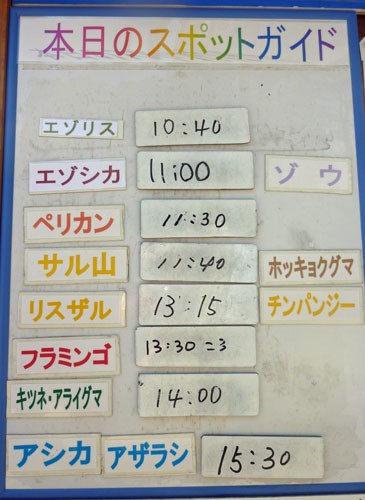 本日のスポットガイド
エゾリス 10:40
エゾシカ 11:00 ゾウ
ペリカン 11:30
サル山 11:40 ホッキョクグマ
リスザル 13:15 チンパンジー
フラミンゴ 13:30=3
キツネ・アライグマ 14:00
アシカ アザラシ 15:30